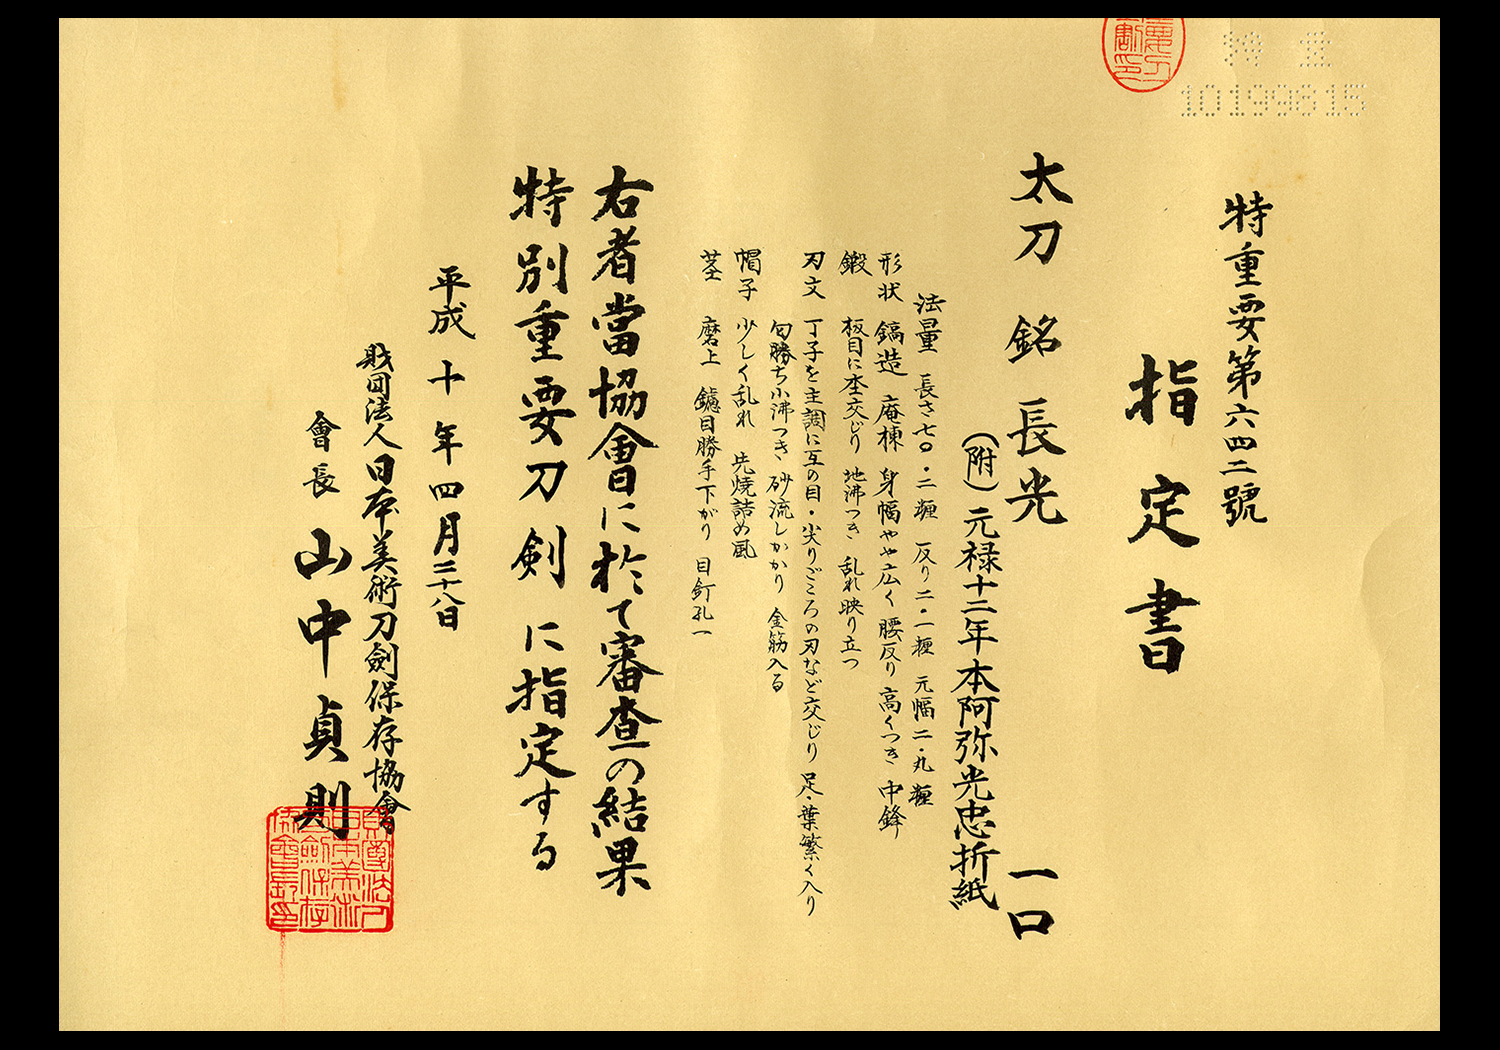 特重
10199615
特重要第六四二號
指定書
太刀 銘 長光 一口
(附)元禄十二年本阿弥光忠折紙
法量 長さ七〇・二糎 反り二・一糎 元幅二・九糎
形状 鎬造 庵棟 身幅やや広く 腰反り高くつき 中鋒
鍛 板目に杢交じり 地沸つき 乱れ映り立つ
刃文 丁子を主調に互の目・尖りごころの刃など交じり 足・葉繁く入り
匂勝ち小沸つき 砂流しかかり 金筋入る
帽子 少しく乱れ 先焼詰め風
茎 磨上 鑢目勝手下がり 目釘孔一
右者當協會に於て審査の結果
特別重要刀剣に指定する
平成十年四月二十八日
財団法人日本美術刀劍保存協會
會長 山中貞則